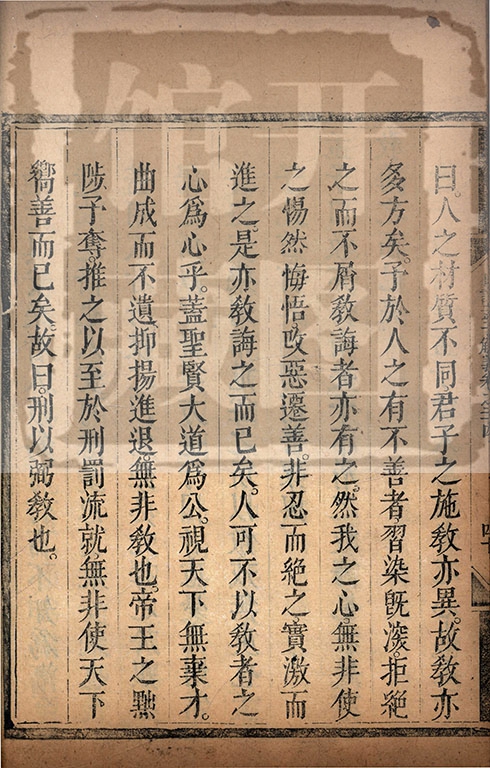 曰。人之材質不同。君子之施教亦異。故教亦
多方矣。予於人之有不善者。習染旣深。拒絕
之而不屑教誨者亦有之。然我之心。無非使
之惕然悔悟。改惡遷善。非忍而絕之。實激而
進之。是亦教誨之而已矣。人可不以教者之
心爲心乎。蓋聖賢大道爲公。視天下無棄才。
曲成而不遺。抑揚進退。無非教也。帝王之黜
陟予奪。推之以至於刑罰流就。無非使天下
嚮善而已矣。故曰。刑以弼教也。